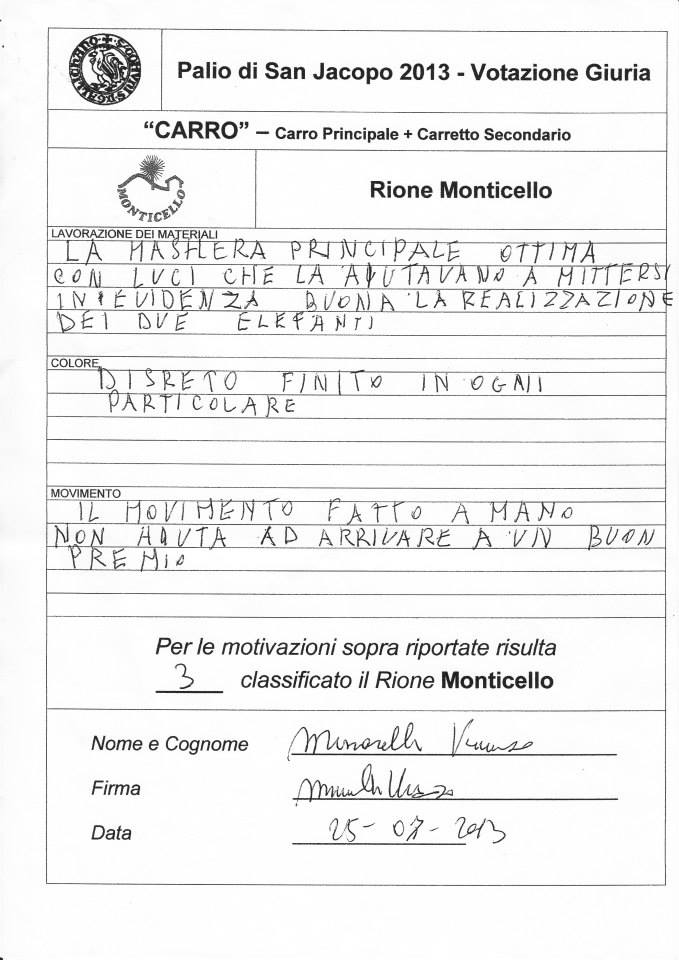 Palio di San Jacopo 2013 - Votazione Giuria
“CARRO” – Carro Principale + Carretto Secondario
MONTICELLO
Rione Monticello
LAVORAZIONE DEI MATERIALI
LA MASHERA PRINCIPALE OTTIMA
CON LUCI CHE LA AIUTAVANO A MITTERSI
IN EVIDENZA BUONA LA REALIZZAZIONE
DEI DUE ELEFANTI
COLORE
DISRETO FINITO IN OGNI
PARTICOLARE
MOVIMENTO
IL MOVIMENTO FATTO A MANO
NON AIUTA AD ARRIVARE A UN BUON
PREMIO
Per le motivazioni sopra riportate risulta
3 classificato il Rione Monticello
Nome e Cognome
Firma
Data 25-07-2013